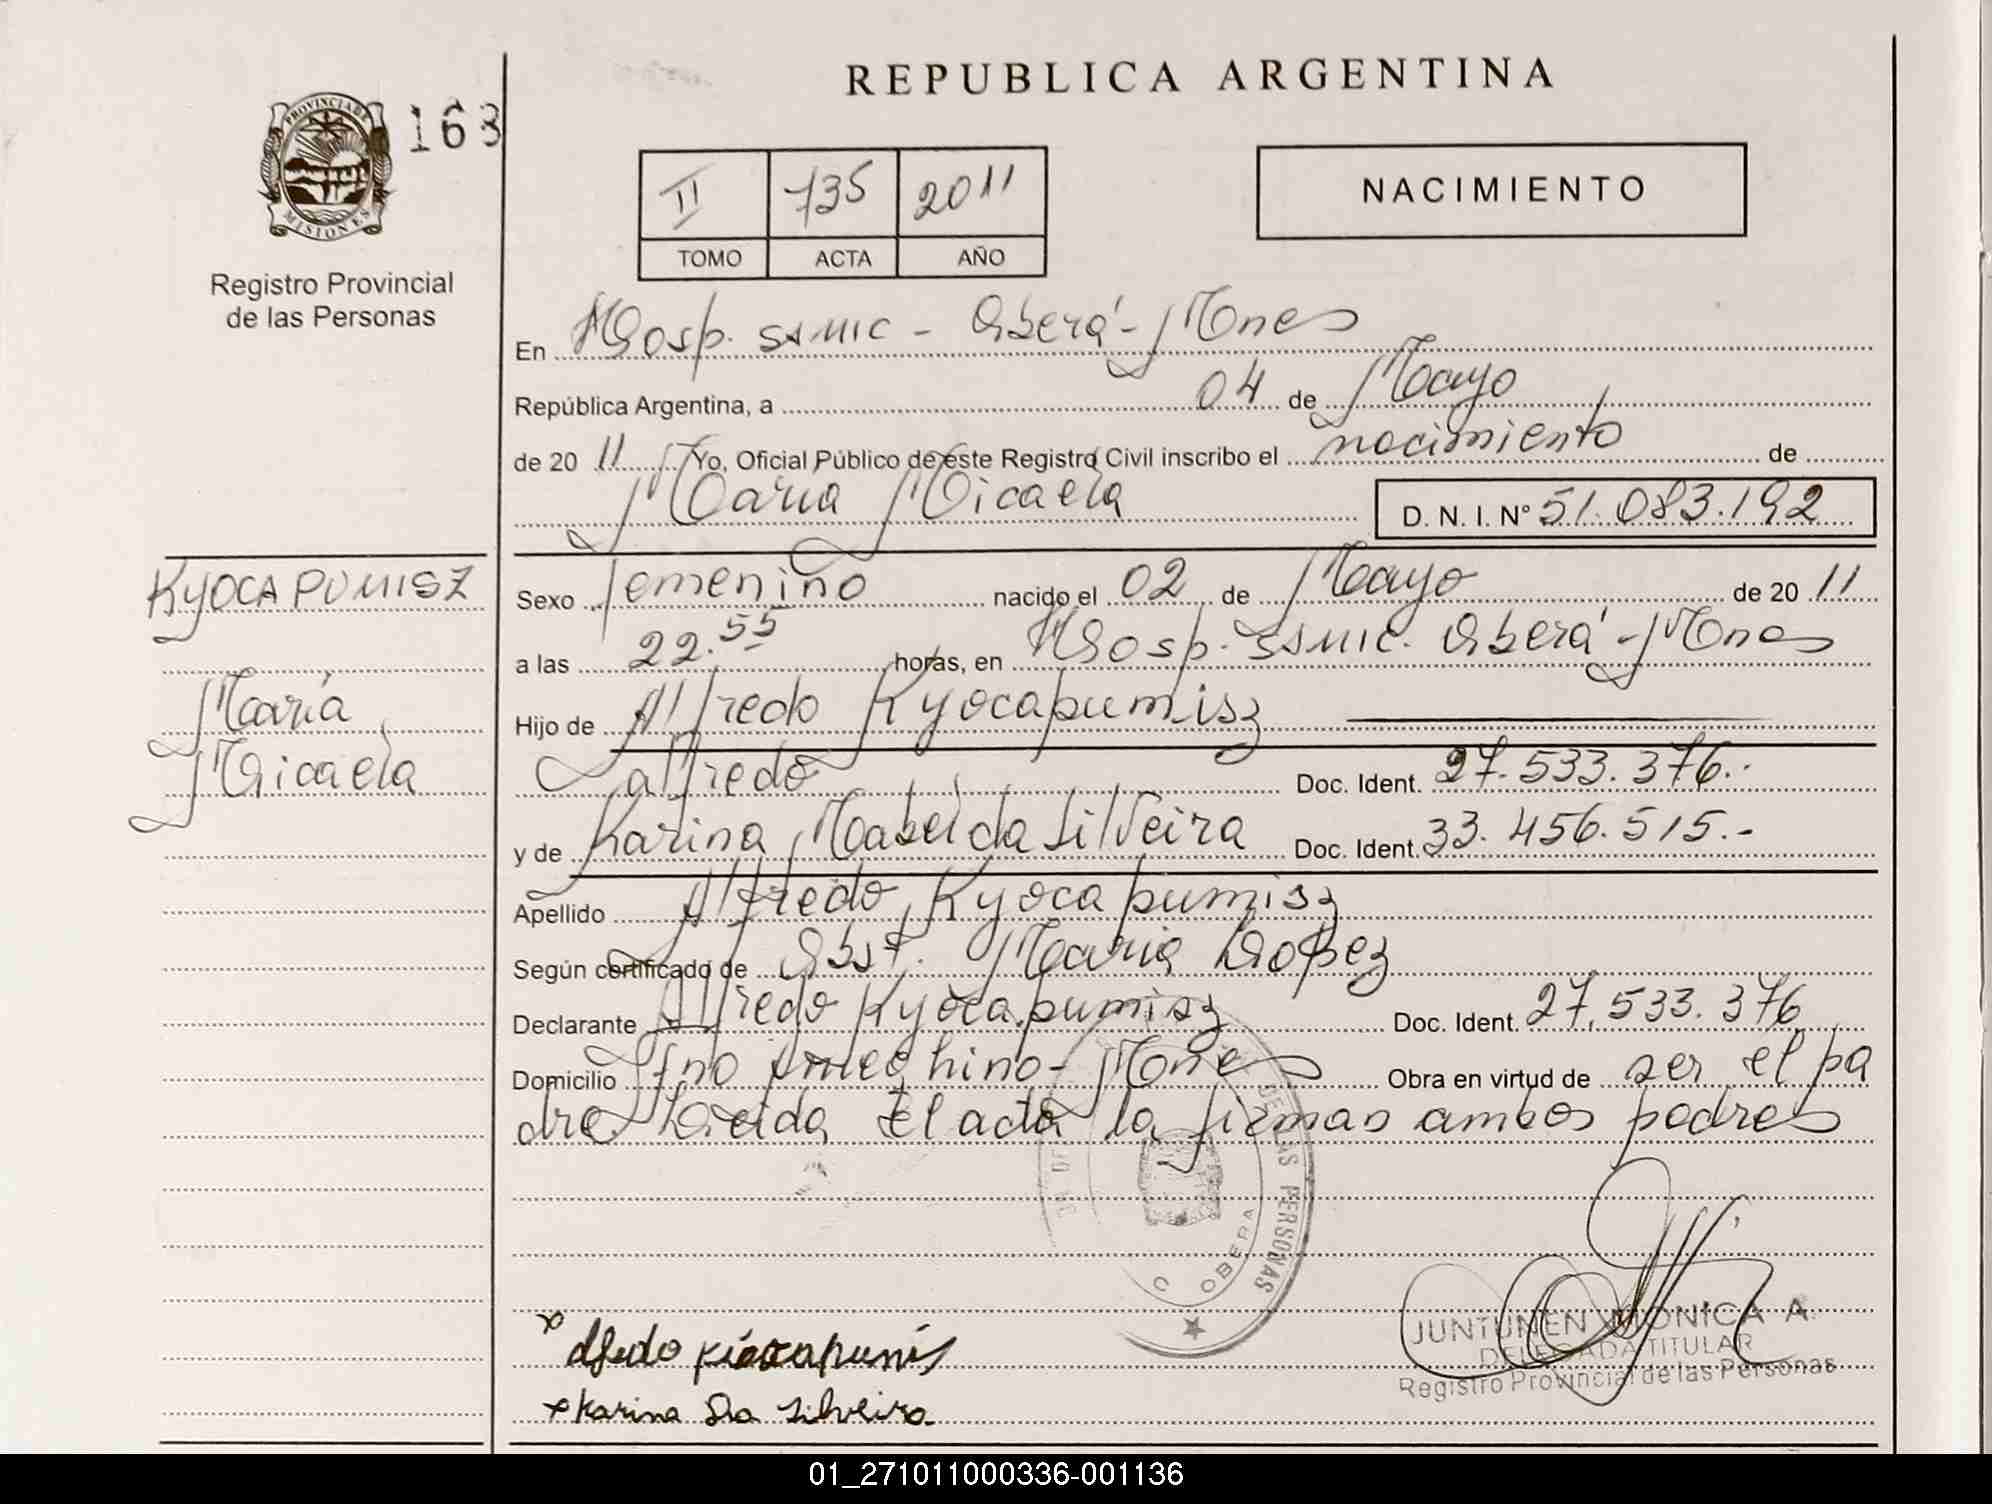 REPUBLICA ARGENTINA
PROVINCIA DE
MISIONES
163
Registro Provincial
de las Personas
II 735 2011
TOMO ACTA AÑO
NACIMIENTO
En Hosp. SSMIC - Oberá - Mones
República Argentina, a 04 de Mayo
de 20 11 Yo, Oficial Público de este Registro Civil inscribo el nacimiento de
Maria Micaela D. N. I. N° 51.083.192
KYOCAPUMISZ
María
Micaela
Sexo femenino nacido el 02 de Mayo de 20 11
a las 22.55 horas, en Hosp. SSMIC. Oberá - Mones
Hijo de Alfredo Kyocapumisz
alfredo Doc. Ident. 27.533.376.-
y de Karina Mabel da Silveira Doc. Ident. 33.456.515.-
Apellido Alfredo Kyocapumisz
Según certificado de Obst. Maria Lopez
Declarante Alfredo Kyocapumisz Doc. Ident. 27.533.376
Domicilio Fno Ameghino - Mones Obra en virtud de ser el pa
dre Leida El acta la firman ambos padres
DE LAS PERSONAS
OBERA
Alfredo
x Karina Da Silveira
JUNTUNEN MONICA A.
DELEGADA TITULAR
Registro Provincial de las Personas
01_271011000336-001136